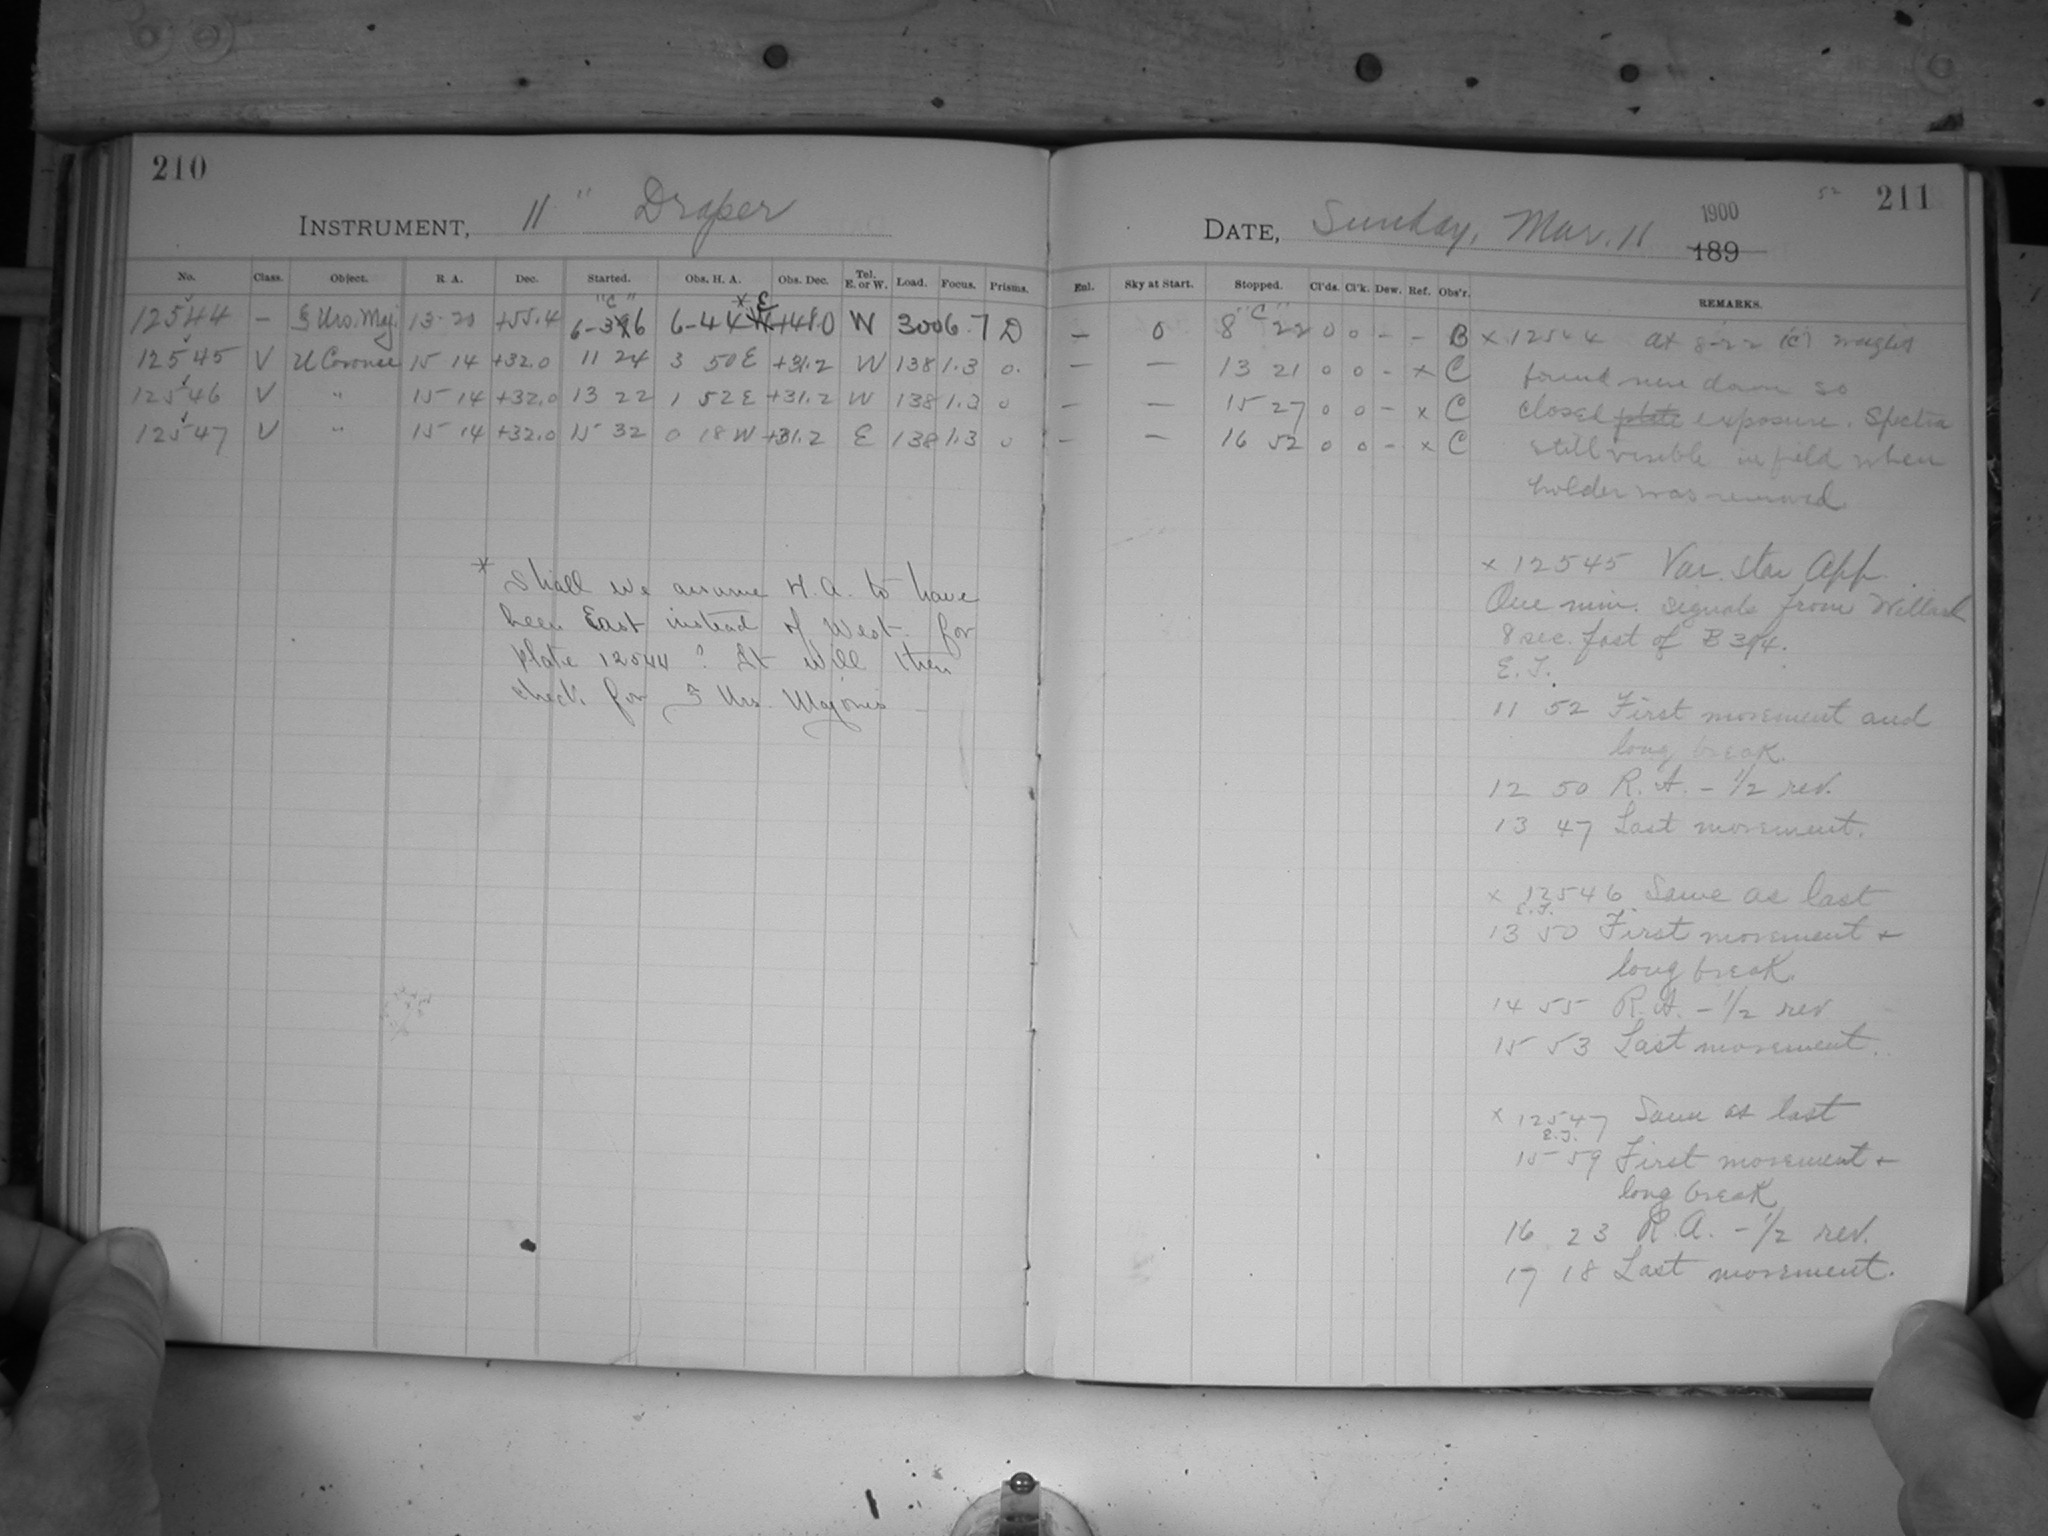 210
INSTRUMENT, 11" Draper
No. Class. Object. R A. Dec. Started. Obs. H. A. Obs. Dec. Tel. E. or W. Load. Focus. Prisms.
"C" * E
12544 – ζ Urs. Maj. 13-20 +55.4 6-36 6-44 W +48.0 W 300 6.7 D
12545 V U Coronae 15 14 +32.0 11 24 3 50 E +31.2 W 138 1.3 0.
12546 V " 15 14 +32.0 13 22 1 52 E +31.2 W 138 1.3 0
12547 V " 15 14 +32.0 15 32 0 18 W +31.2 E 138 1.3 0
* Shall we assume H. A. to have
been East instead of West for
plate 12544? It will then
check for ζ Urs. Majoris
52 211
DATE, Sunday, Mar. 11 1900 189
Enl. Sky at Start. Stopped. Cl'ds. Cl'k. Dew. Ref. Obs'r. REMARKS.
"C"
– 0 8 22 0 0 – – B
– – 13 21 0 0 – x C
– – 15 27 0 0 – x C
– – 16 52 0 0 – x C
x 12544 At 8-22 (C) weights
found were down so
closed plate exposure. Spectra
still visible in field when
holder was removed
x 12545 Var. Star App.
One min. signals from Willard
8 sec. fast of B 394.
E. T.
11 52 First movement and
long break.
12 50 R. A. – 1/2 rev.
13 47 Last movement.
x 12546 Same as last
E. T.
13 50 First movement +
long break.
14 55 R. A. – 1/2 rev
15 53 Last movement.
x 12547 Same as last
E. T.
15 59 First movement +
long break
16 23 R. A. – 1/2 rev.
17 18 Last movement.